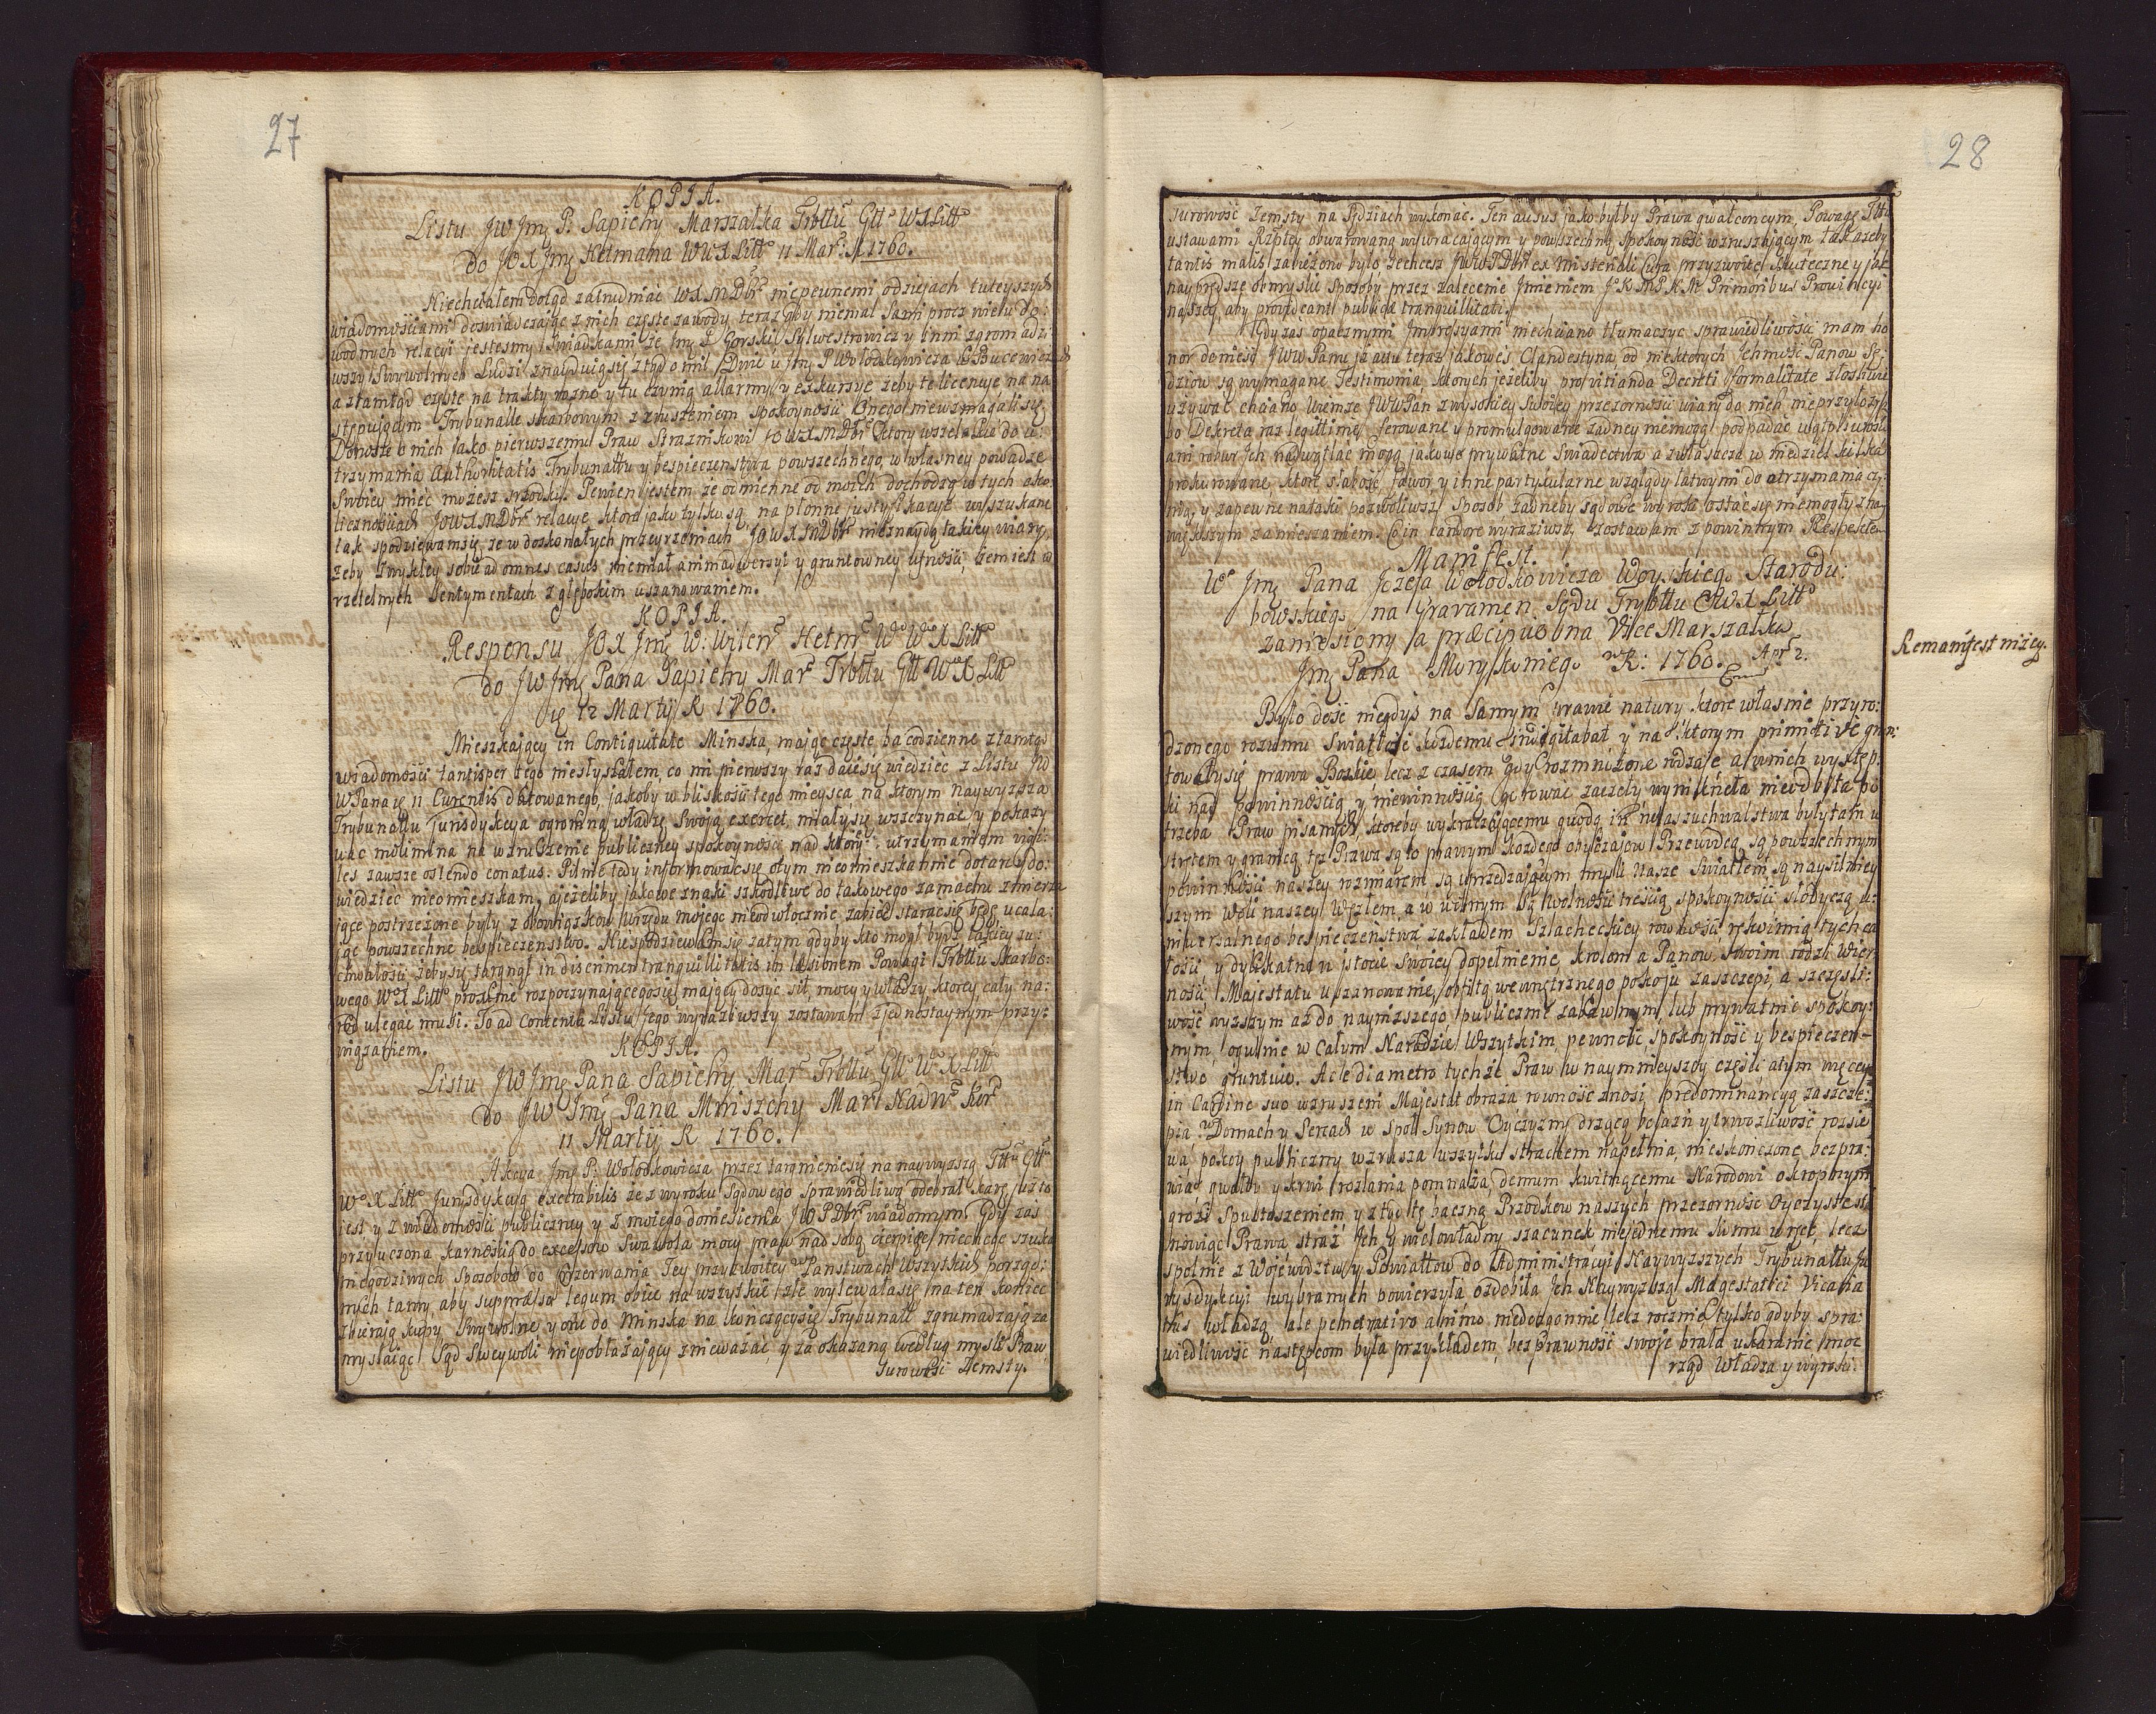 27
KOPIA.
Listu JW Jmę P. Sapiehy Marszałka Trbłłu Głł WXLitt
do JOX Jmę Hetmana WWXLitt 11 Mar: R 1760.
Niechciałem dotąd zatrudniać WXMDbr niepewnemi o dziejach tuteyszych
wiadomościami doświadczaiąc z nich częste zawody, teraz gdy niemal sami procz wielu do:
wodnych relacyi jestesmy Swiadkami że Jmę P Gorski Sylwestrowicz y inni zgromadzi
wszy Swywolnych Ludzi znayduią się ztąd o mil Dwie u Jmę P Wołodkowicza
a ztamtąd częste na trakty rożne y tu czynią allarmy y exkursye żeby te licencye na na
stępuiącym Trybunalle skarbowym z zruszeniem spokoyności Onego niewzmagali się
Donoszę o nich jako pierwszemu Praw Straznikowi JOWXMDbr ktory wszelkie do u:
trzymania Authoritatis Trybunałłu y bespieczenstwa powszechnego, w własney powadze
Swoiey mieć możesz srzodki. Pewien jestem że odmienne od moich dochodzą w tych oko:
licznościach JOWXMDbr relacye, ktore jako tylko są na płonne justyfikacye wyszukane
tak spodziewam się, że w doskonałych przeyrzeniach JOWXMDbr nieznaydą takiey wiary
żeby zwykłey sobie ad omnes casus niemiał animadwersyi y gruntowney ufności, Jam iest w
rzetelnych Sentymentach z głębokim uszanowaniem.
KOPIA.
Responsu JOX Jmę W: Wilen Hetm W WXLitt
do JW Jmę Pana Sapiehy Mar Trbłłu Głł WXLitt
d 12 Martij R 1760.
Mieszkaiący in Contiguitate Minska, maiąc częste ba codzienne ztamtąd
wiadomości tantisper tego niesłyszałem, co mi pierwszy raz daie się wiedzieć z Listu JW
WPana d 11 Currentis datowanego, jakoby w bliskości tego mieysca, na ktorym naywyższa
Trybunałłu Jurisdykcya ogromną władzę Swoią exercet, miały się wszczynać y pokazy
wać molimina na wzruszenie publiczney spokoyności nad ktorey utrzymaniem vigi:
les zawsze ostendo conatus: Pilnie tedy informować się o tym nieomieszkanie dotąd y do:
wiedzieć nieomieszkam, a jeżeliby jakowe znaki szkodliwe do takowego zamachu zmierza
jące postrzeżone były z obowiązkow Urzędu mojego nieodwłocznie zabieć staracsię będę ucala:
jąc powszechne bespieczenstwo. Niespodziewam się zatym gdyby kto mogł bydz takiey zu:
chwałości żeby się targnął in discrimen tranquillitatis in læsionem Powagi Trbłłu Skarbo:
wego WXLitt prożkinie rozpoczynaiącegosię maiący dosyc sił, mocy y władzy, ktorey cały na:
rod ulegac musi. To ad Contenta Listu Jego wyraziwszy zostawam z jednostaynym przy:
wiązaniem.
KOPIA.
Listu JW Jmę Pana Sapiehy Mar Trbłłu Głł WXLitt
do JW Jmę Pana Mniszchy Mar Nadw Kor
11 Martij R 1760.
Akcya Jmę P. Wołodkowicza przez targnieniesię na naywyższą Tłłu Głł
WXLitt Jurisdykcyą execrabilis że z wyroku Sądowego sprawiedliwą odebrał karę, już to
jest y z wiadomości publiczney y z mojego doniesienia JWPDbr wiadomym. Gdy zaś
przyuczona karności do excessow Swawola mocy praw nad sobą cierpieć niechcąc szuka
niegodziwych Sposobow do Przerwania Jey przyzwoitey w Panstwach wszytkich porząd:
nych tamy, aby suppressa legum obice na wszytkie złe wylewałasię na ten koniec
zbieraią kupy Swywolne, y one do Minska na kończącysię Trybunał zgromadzają za
myslaiąc Sąd Sweywoli niepobłażaiący znieważać, y za okazaną według mysli Praw
Surowość Zemsty.
28
surowość Zemsty na Sędziach wykonać. Ten ausus jako byłby Prawa gwałcącym, Powagę Tłłu
ustawami Rzpltey obwarowaną wywracaiącym y powszechną spokoyność wzruszaiącym tak ażeby
tantis malis zabieżono było, zechcesz JWWPDbr ex Ministeriali Cura przyzwoite, Skuteczne y jak
nayprędsze obmyslić sposoby przez zalecenie Imieniem JKMPNM Primoribus Prowincyi
naszey, aby provideant publicæ tranquillitati.
Gdy zaś opacznymi Impressyami niechciano tłumaczyc sprawiedliwości mam ho
nor donieść JWW Panu iż actu teraz jakoweś Clandestyna od niektorych Jchmość Panow Sę:
dziow są wymagane Testimonia, ktorych jeżeliby pro vitianda Decreti formalitate złośliwie
używać chciano, wiem że JWWPan z wysokiey Swoiey przezorności wiary do nich nieprzyłożysz
bo Dekreta raz legittime ferowane y promulgowane żadney niemogą podpadać wątpliwości
ani robur Jch nadwątlać mogą jakowe prywatne Swiadectwa a zwłaszcza w niedziel kilka
prokurowane, ktore słabość, fawor, y inne partykularne względy łatwymi do otrzymania czy:
nią, y zapewne na taki pozwoliwszy Sposob żadneby sądowe wyroki ostać się niemogły z nay
większym zamieszaniem. Co in candore wyraziwszy zostawam z powinnym Respektem
Manifest.
W Jmę Pana Jozefa Wołodkowicza Woyskiego Starodu:
bowskiego na Gravamen Sądu Trybłłu GłłWXLitt
zaniesiony a præcipue na Vice Marszałka
Jmę Pana Morykoniego R: 1760. Apr 2.
Remanifest niżey.
Było dość niegdyś na Samym prawie natury ktore własnie przyro:
dzonego rozumu Swiatłość każdemu y na ktorym primitive grun:
towały się prawa Boskie lecz z czasem gdy rozmnożone rodzaje a w nich występ:
ki nad powinnością y niewinnością gorować zaczeły wyniknęła nieodbita po
trzeba Praw pisanych, ktoreby wykraczaiącemu quodq in zuchwalstwa były tam u
strętem y granicą, tę Prawa są to prawym każdego obyczajow Przewodcą, są powszechnym
powinności naszey rozmiarem są uprzedzaiącym mysli Nasze Swiatłem są naysilniey
szym woli naszey Węzłem, a w wolnym są wolności treścią spokoyności słodyczą u:
niwersalnego bespieczenstwa zakładem Szlacheckiey rowności, rękoimią tych ca
łość y delikatną w istocie swoiey dopełnienie, krolom a Panow Swoim rodzi wier
ność Majestatu uszanowanie, obfitą wewnętrznego pokoju zaszczepi, a szczęśli:
wość wyższym aż do nayniższego, publicznie zabawnym, lub prywatnie spokoy:
nym, ogulnie w Całym Narodzie Wszytkim, pewność, spokoyność y bespieczen
stwo gruntuie. Ac e diametro tychże Praw w naymnieyszey części a tym więcey
in Cardine suo wzruszeni Majestat obraża rowność znosi, predominancyą zaszcze:
pia, w Domach y Sercach w społ Synow Oyczyzny drzącą bojaźń y trwozliwość rozsie
wa, pokoy publiczny wzrusza wszytko strachem napełnia, nieskończone bezpra:
wia gwałty y krwi rozlania pomnaża, demum kwitnącemu Narodowi okropnym
grozi Spustoszeniem y ztąd tę baczną Przodkow naszych przezorność Oyczyste sta
nowiąc Prawa straż Jch y wielowładny szacunek niejednemu Simu wręcz, lecz
spolnie z Wojewodztw y Powiatow do Administracyi Naywyższych Trybunałłu Ju
rysdykcyi wybranych powierzyła ozdobiła Jch Naywyższą Magestatici Vicaria
tus władzą, ale penetrativo animo niedozgonnie lecz rocznie tylko gdyby spra:
wiedliwość następcom była przykładem, bezprawność swoje brała ukaranie moc
rząd Władza y wyroki: